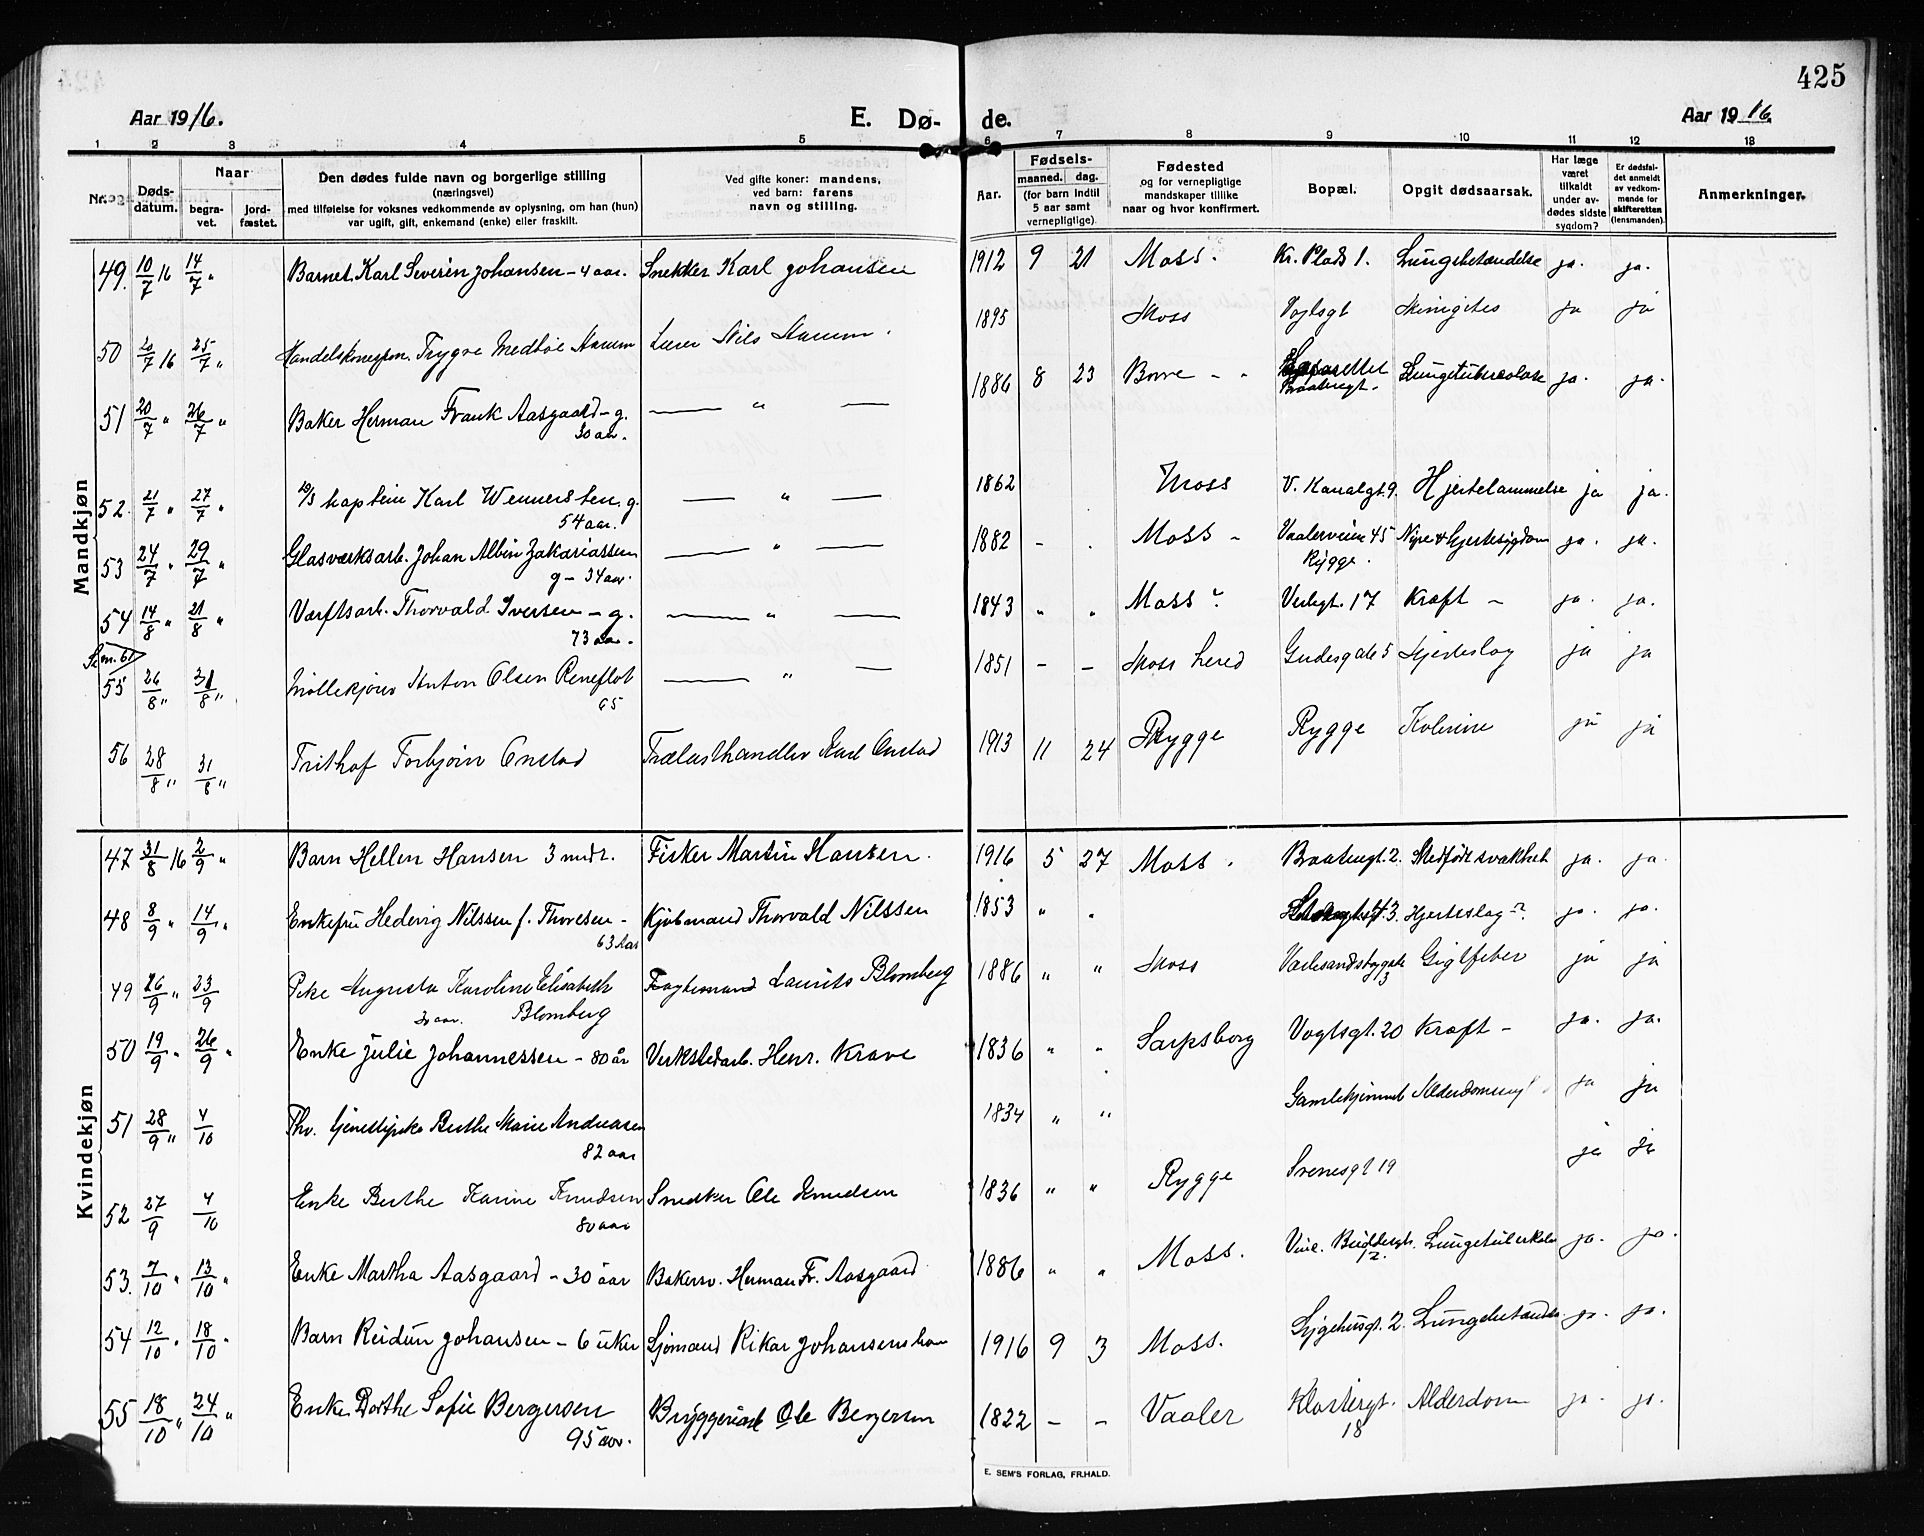 425
Aar 1916. E. Dø- de. Aar 1916.
1 2 3 4 5 6 7 8 9 10 11 12 13
Nr.
Døds-
datum.
Naar
begra-
vet.
jord-
fæstet.
Den dødes fulde navn og borgerlige stilling
(næringsvei)
med tilføielse for voksnes vedkommende av oplysning, om han (hun)
var ugift, gift, enkemand (enke) eller fraskilt.
Ved gifte koner: mandens,
ved barn: farens
navn og stilling.
Aar.
Fødsels-
maaned. dag.
(for barn indtil
5 aar samt
vernepligtige).
Fødested
og for vernepligtige
mandskaper tillike
naar og hvor konfirmert.
Bopæl.
Opgit dødsaarsak.
Har læge
været
tilkaldt
under av-
dødes sidste
sygdom?
Er dødsfal-
det anmeldt
av vedkom-
mende for
skifteretten
(lensmanden).
Anmerkninger.
Mandkjøn
49. 10/7 16 14/7 " Barnet Karl Severin Johansen – 4 aar. Snekker Karl Johansen 1912 9 21 Moss. Kr. Plads 1. Lungebetændelse ja. ja.
50 20/7 16 25/7 " Trygve Medbøe Lærer Nils 1895 Moss Vogtsgt ja ja
51 20/7 " 26/7 " Baker Herman Frank Aasgaard – g. — " — 1886 8 23 Borre - " Lungetuberculose ja. ja.
30 aar. Baatengt.
52. 21/7 " 27/7 " kaptein Karl Wennersten. g. — " — 1862 Moss V. Kanalgt. 9. Hjertelammelse ja ja.
54 aar.
53 24/7 " 29/7 " Glasværksarb. Johan Albin Zakariassen — " — 1882 - . Moss - Vaalerveien 45 Nyre & hjertesygdom ja. ja.
g – 34 aar. Rygge.
54 14/8 " 21/8 " Værftsarb. Thorvald Iversen – g. — " — 1843 " " Moss ? Verlegt. 17 Kræft – ja. ja.
73 aar.
Se nr. 61
55 26/8 " 31/8 " Møllekjører Anton Olsen Reneflot — " — 1851 - - Moss hered Gudesgate 5 Hjerteslag ja ja
65
56 28/8 " 31/8 " Frithof Torbjørn Onstad Trælasthandler Karl Onstad 1913 11 24 Rygge Rygge Kolerine ja ja
Kvindekjøn
47 31/8 16 2/9 " Barn Hellen Hansen 3 mdr. Fisker Martin Hansen. 1916 5 27 Moss. Baatengt. 2. Medfødt svakhet ja. ja.
48 8/9 " 14/9 " Enkefru Hedevig Nilssen f. Thoresen – Kjøbmand Thorvald Nilssen 1853 " " 3. Hjerteslag ja. ja.
63 aar
49 26/9 " 23/9 Pike Augusta Karoline Elisabeth Fragtemand Laurits Blomberg 1886 " " Moss Værlesandsbygate Gigtfeber ja ja
30 aar. Blomberg 3
50 19/9 " 26/9 " Enke Julie Johannessen – 80 år Verkstedarb. Henr. Krave 1836 " " Sarpsborg Vogtsgt. 20 Kræft – ja. ja.
51 28/9 " 4/10 Berthe Marie Andreasen 1834 " " Gamlehjemmet ja ja
82 aar
52 27/9 4/10 Enke Berthe Karine Knudsen Snedker Ole Knudsen 1836 " " Rygge Svenesgt 19 ja ja
80 aar
53. 7/10 " 13/10 " Enke Martha Aasgaard – 30 aar Bakersv. Herman Fr. Aasgaard 1886 " " Moss. Lungetuberkulos ja. ja.
12.
54 12/10 " 18/10 " Barn Reidun Johansen – 6 uker Sjømand Rikar Johansens 1916 9 3 Moss. Sygehusgt. 2. Lungebetænd. ja. ja.
55 18/10 " 24/10 " Enke Dorthe Sofie Bergersen Bryggeriarb Ole Bergersen 1822 - - Vaaler Klostergt. Alderdom ja. ja.
95 aar. 18
E. SEM'S FORLAG, FR.HALD.